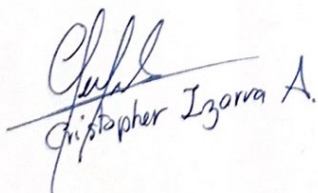 Cristopher Izarra A.